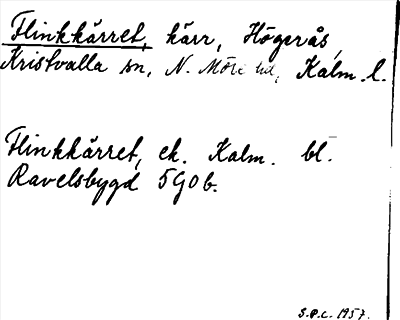 Flinkkärret, kärr, Högerås,
Kristvalla sn, N. Möre hd, Kalm. l.
Flinkkärret, ek. Kalm. bl.
Ravelsbygd 5G0b.
S.P.C. 1957.